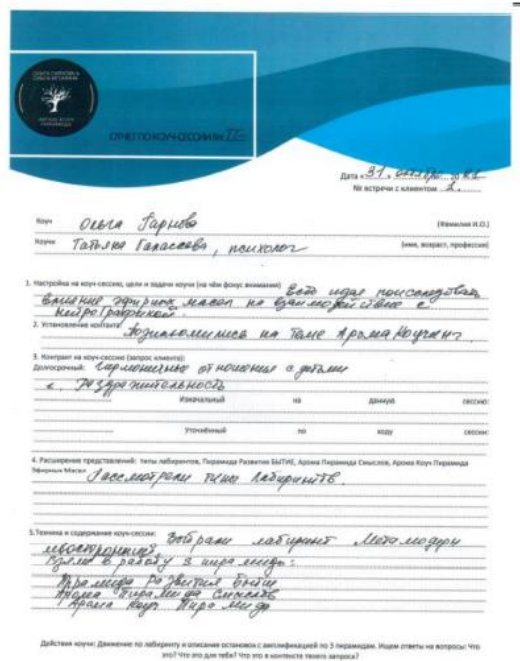 ОТЧЕТ ПО КОУЧ-СЕССИИ № II
АРОМА КОУЧ
ПИРАМИДА
Дата «31» октября 20
№ встречи с клиентом 1.
Коуч Ольга (Фамилия И.О.)
Коучи Татьяна, психолог (имя, возраст, профессия)
1. Настройка на коуч-сессию, цели и задачи коучи (на чём фокус внимания) Есть идея поисследовать
влияние эфирных масел на взаимодействие с
НейроГрафикой.
2. Установление контакта: Познакомились на теме АромаКоучинг.
3. Контракт на коуч-сессию (запрос клиента):
Долгосрочный: Гармоничные отношения с детьми
Раздражительность
Изначальный на данную сессию:
Уточнённый по ходу сессии:
4. Расширение представлений: типы лабиринтов, Пирамида Развития БЫТИЕ, Арома Пирамида Смыслов, Арома Коуч Пирамида
Эфирных Масел Рассмотрели типы лабиринтов.
5. Техника и содержание коуч-сессии: Выбрали лабиринт Метамодерн
Взяли в работу 3 пирамиды:
Пирамида Развития Бытие
Арома Пирамида Смыслов
Арома Коуч Пирамида
Действия коучи: Движение по лабиринту и описания остановок с амплификацией по 3 пирамидам. Ищем ответы на вопросы: Что
это? Что это для тебя? Что это в контексте твоего запроса?